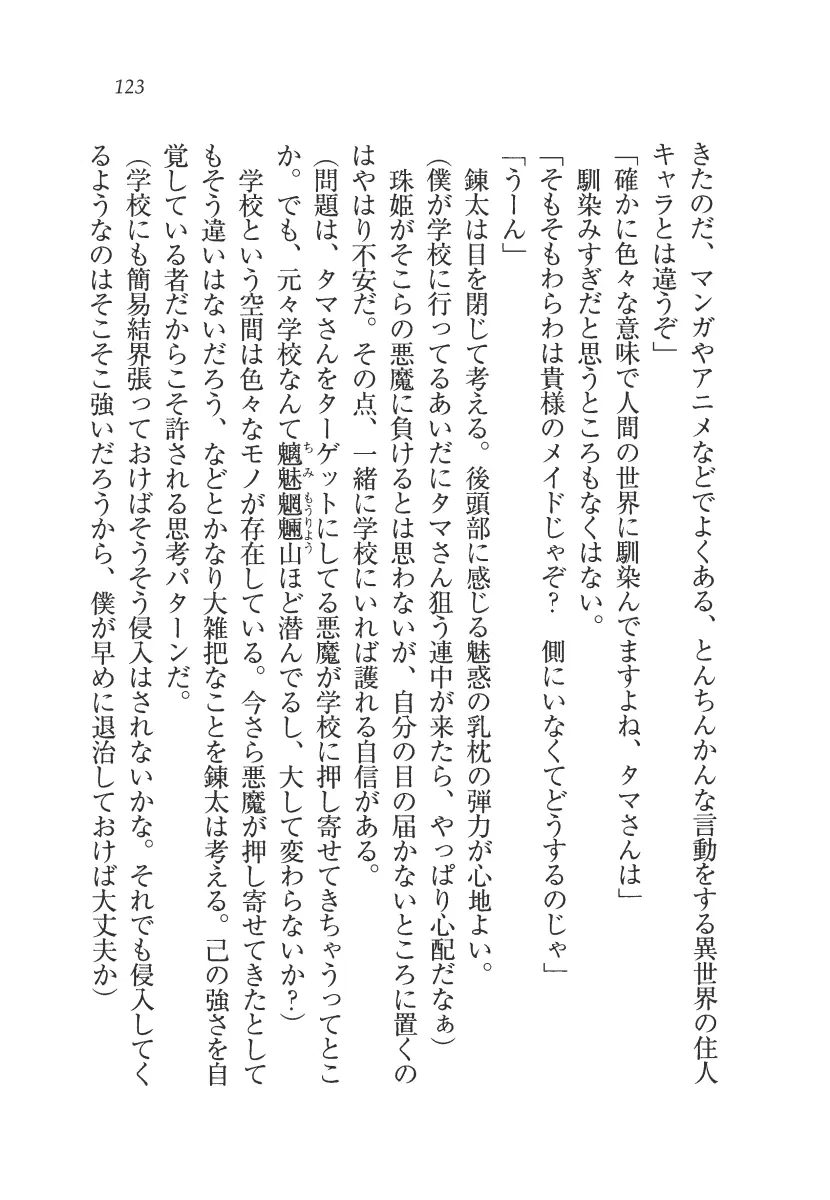 123
きたのだ、マンガやアニメなどでよくある、とんちんかんな言動をする異世界の住人
キャラとは違うぞ」
「確かに色々な意味で人間の世界に馴染んでますよね、タマさんは」
馴染みすぎだと思うところもなくはない。
「そもそもわらわは貴様のメイドじゃぞ？　側にいなくてどうするのじゃ」
「うーん」
錬太は目を閉じて考える。後頭部に感じる魅惑の乳枕の弾力が心地よい。
（僕が学校に行ってるあいだにタマさん狙う連中が来たら、やっぱり心配だなぁ）
珠姫がそこらの悪魔に負けるとは思わないが、自分の目の届かないところに置くの
はやはり不安だ。その点、一緒に学校にいれば護れる自信がある。
（問題は、タマさんをターゲットにしてる悪魔が学校に押し寄せてきちゃうってとこ
か。でも、元々学校なんて魑魅魍魎山ほど潜んでるし、大して変わらないか？）
学校という空間は色々なモノが存在している。今さら悪魔が押し寄せてきたとして
もそう違いはないだろう、などとかなり大雑把なことを錬太は考える。己の強さを自
覚している者だからこそ許される思考パターンだ。
（学校にも簡易結界張っておけばそうそう侵入はされないかな。それでも侵入してく
るようなのはそこそこ強いだろうから、僕が早めに退治しておけば大丈夫か）